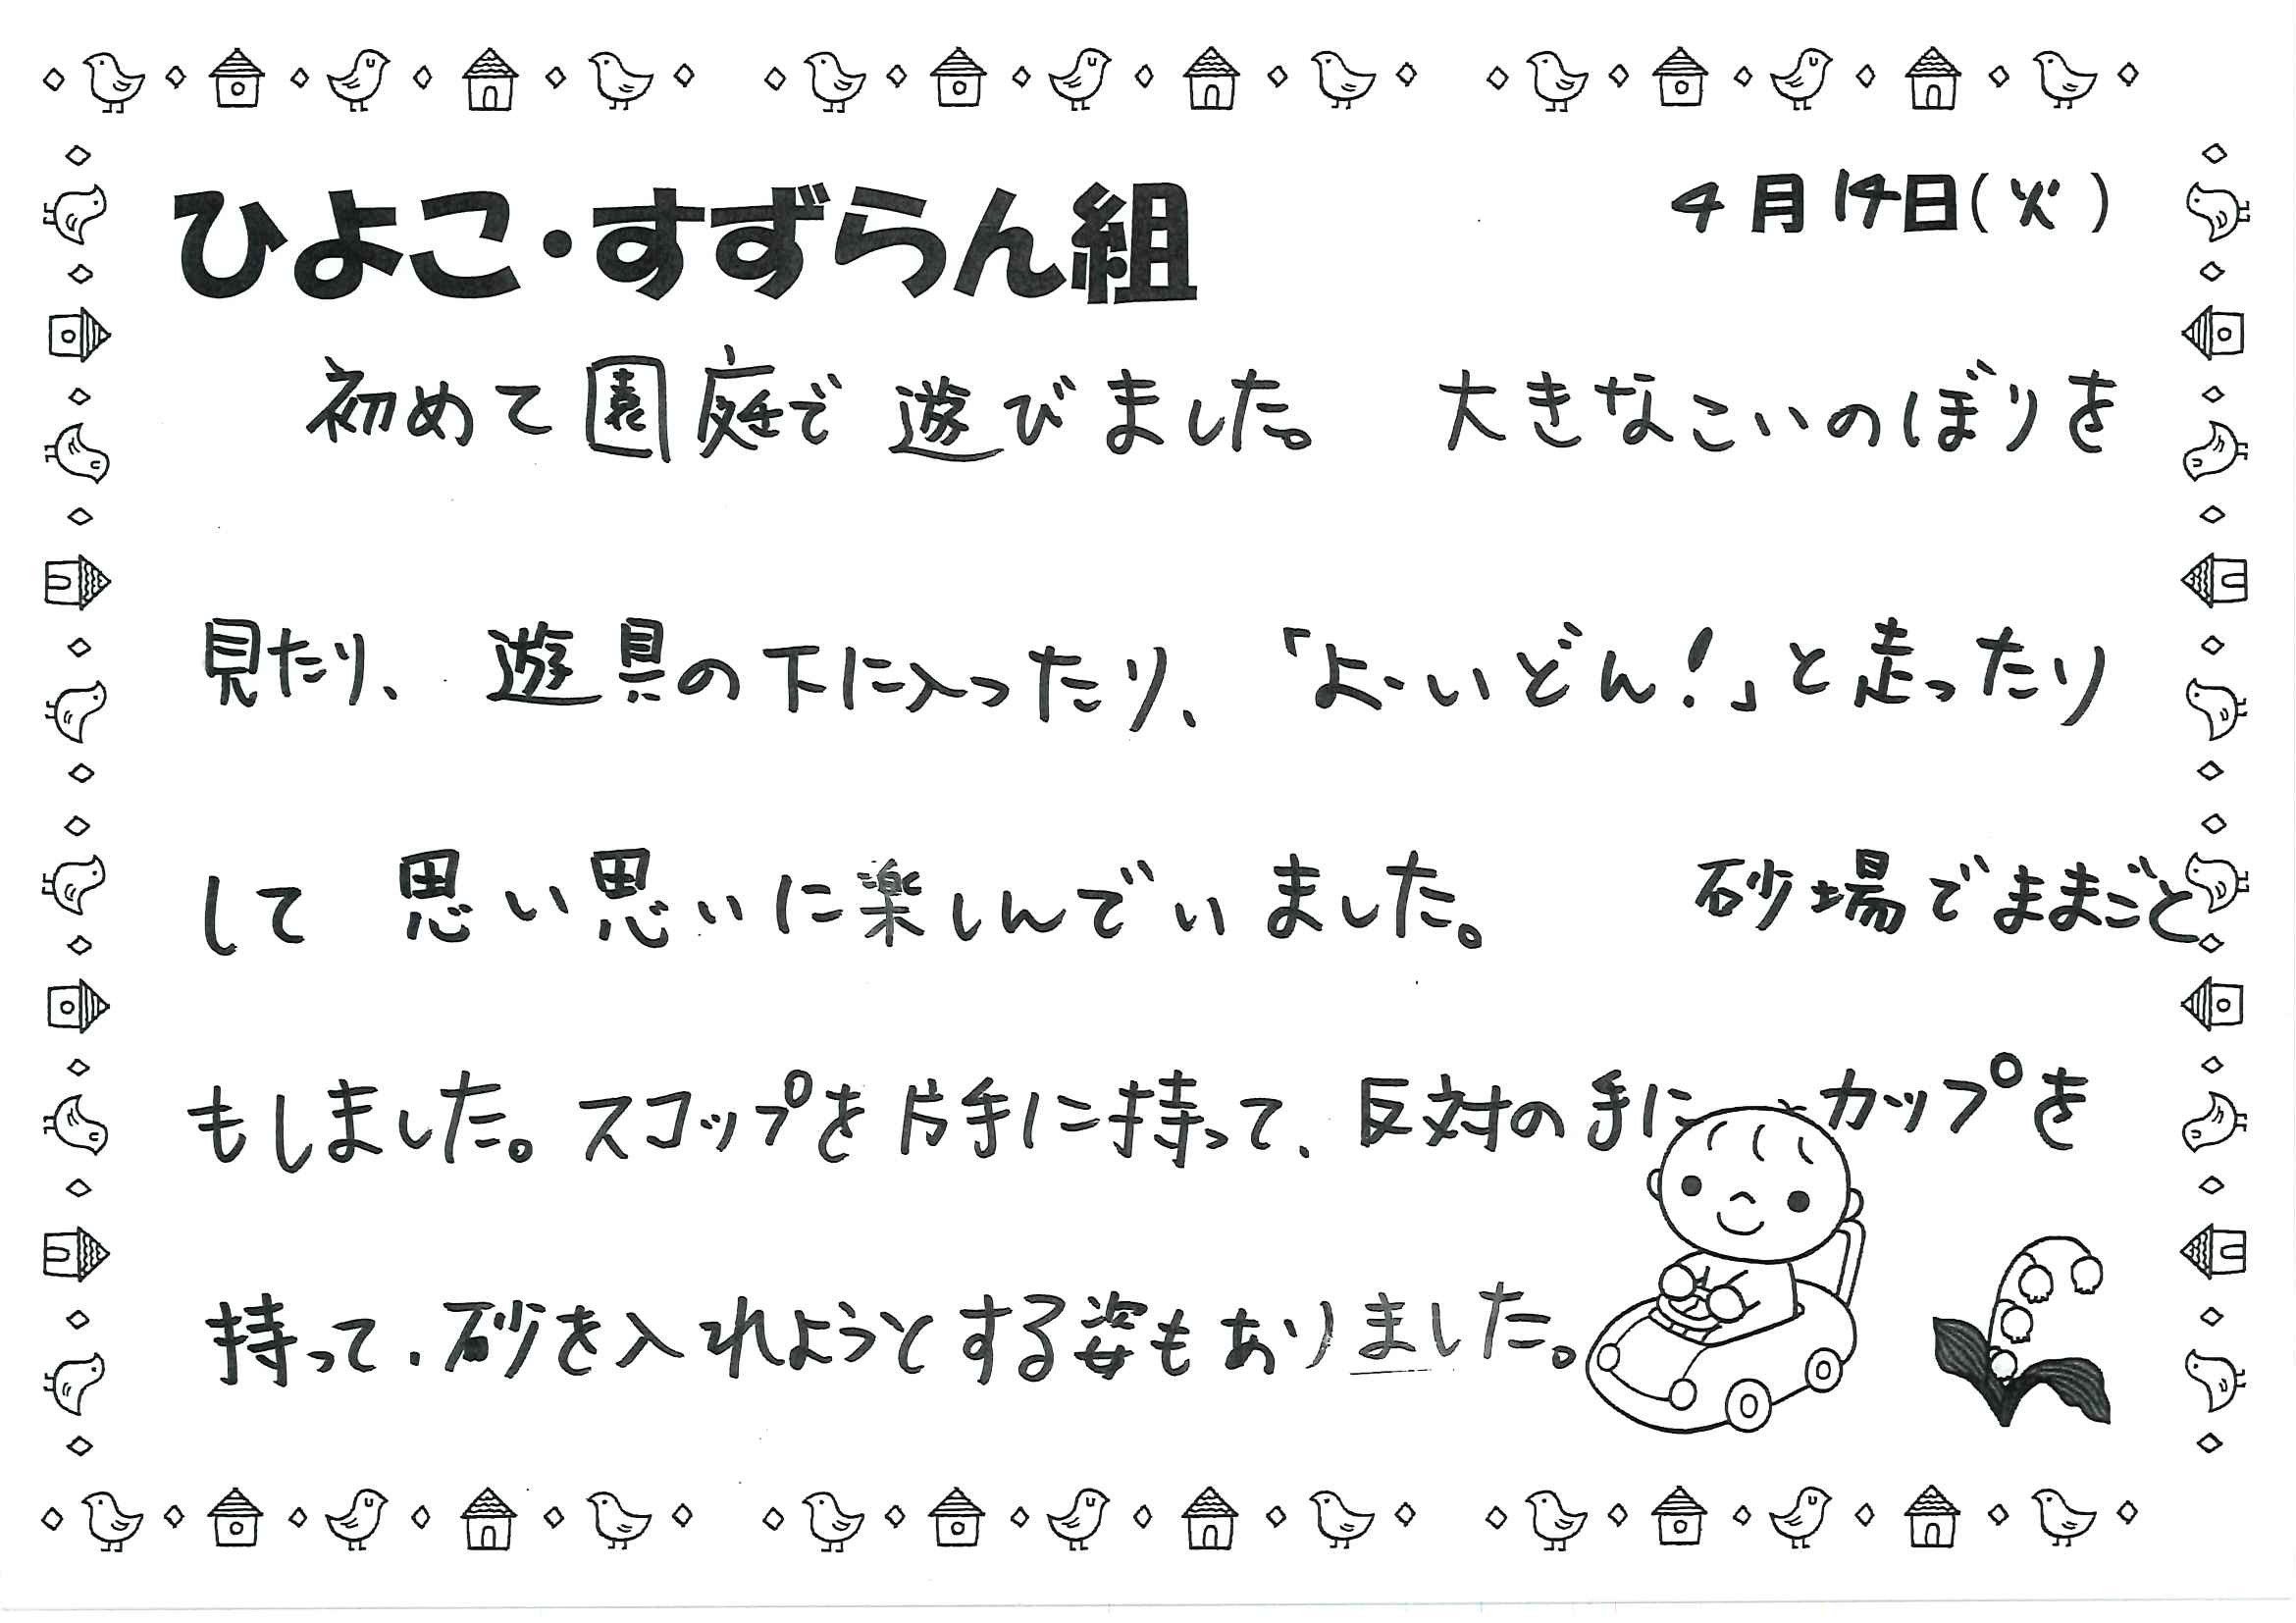 ひよこ・すずらん組
4月14日(火)
初めて園庭で遊びました。大きなこいのぼりを
見たり、遊具の下に入ったり、「よーいどん!」と走ったり
して思い思いに楽しんでいました。砂場でままごと
もしました。スコップを片手に持って、反対の手にカップを
持って、砂を入れようとする姿もありました。